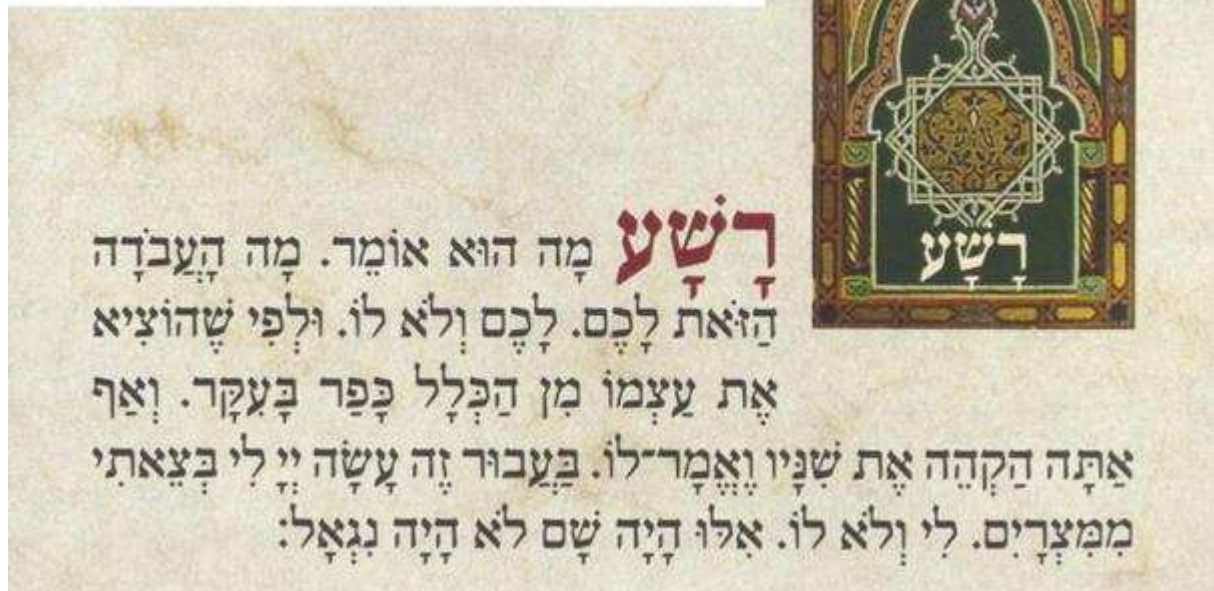 רָשָׁע
רָשָׁע מָה הוּא אוֹמֵר. מָה הָעֲבֹדָה
הַזֹּאת לָכֶם. לָכֶם וְלֹא לוֹ. וּלְפִי שֶׁהוֹצִיא
אֶת עַצְמוֹ מִן הַכְּלָל כָּפַר בָּעִקָּר. וְאַף
אַתָּה הַקְהֵה אֶת שִׁנָּיו וֶאֱמָר־לוֹ. בַּעֲבוּר זֶה עָשָׂה יְיָ לִי בְּצֵאתִי
מִמִּצְרָיִם. לִי וְלֹא לוֹ. אִלּוּ הָיָה שָׁם לֹא הָיָה נִגְאָל: